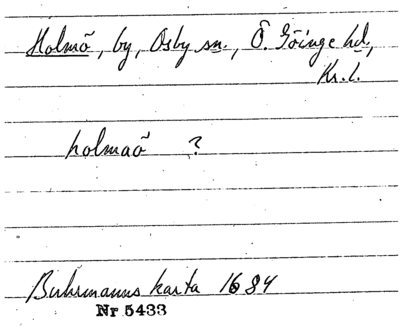 Holmö, by, Osby sn., Ö. Göinge hd,
Kr. l.
holmaö ?
Buhrmanns karta 1684
Nr 5433